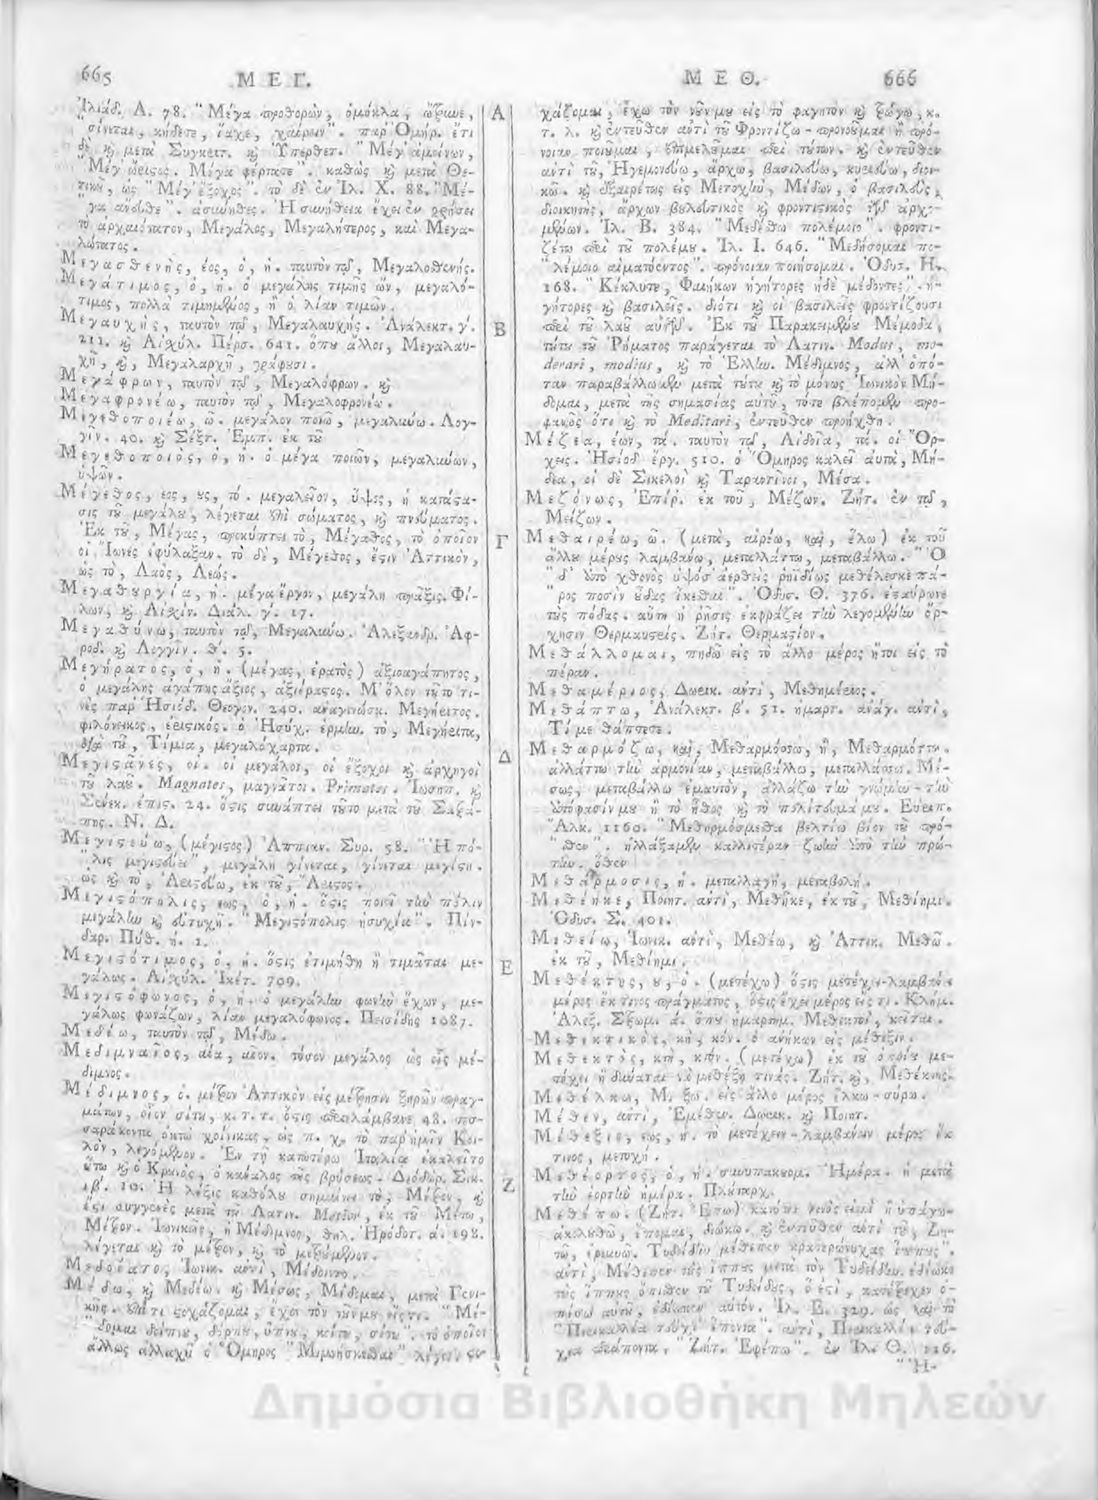 665
Μ Ε Γ.
Ἰλιάδ. Α. 78. "Μέγα προθορὼν, ὁμόκλα,
σίνεται, κήδετε, ἴαχε, χαίρειν". παρ' Ὁμήρ. ἔτι
δὲ καὶ μετὰ Συγκριτ. καὶ Ὑπερθετ. "Μέγ' ἀμείνων,
"Μέγ' ἄριστος. Μέγα φέρτατε". καθὼς καὶ μετὰ Θε-
τικῦ, ὡς "Μέγ' ἔξοχος". τὸ δὲ ἐν Ἰλ. Χ. 88. "Μέ-
γα ἄνευθε". ἀσυνήθες. Ἡ συνήθεια ἔχει ἐν χρήσει
τὸ ἀρχαιότατον, Μεγάλος, Μεγαλήτερος, καὶ Μεγα-
λώτατος.
Μεγασθενὴς, έος, ὁ, ἡ. ταυτὸν τῷ, Μεγαλοσθενής.
Μεγάτιμος, ὁ, ἡ. ὁ μεγάλης τιμῆς ὢν, μεγαλό-
τιμος, πολλὰ τιμημένος, ἢ ὁ λίαν τιμῶν.
Μεγαυχὴς, ταυτὸν τῷ, Μεγαλαυχής. Ἀνάλεκτ. γ'.
211. καὶ Αἰχύλ. Πέρσ. 641. ὅπου ἄλλοι, Μεγαλαυ-
χῆ, καὶ, Μεγαλαρχῆ, γράφουσι.
Μεγάφρων, ταυτὸν τῷ, Μεγαλόφρων. καὶ
Μεγαφρονέω, ταυτὸν τῷ, Μεγαλοφρονέω.
Μεγεθοποιέω, ῶ. μεγάλον ποιῶ, μεγαλύνω. Λογ-
γῖν. 40. καὶ Σέξτ. Ἐμπ. ἐκ τοῦ
Μεγεθοποιὸς, ὁ, ἡ. ὁ μέγα ποιῶν, μεγαλύνων,
ὑψῶν.
Μέγεθος, εος, ους, τό. μεγαλεῖον, ὕψος, ἡ κατάστα-
σις τοῦ μεγάλου, λέγεται ἐπὶ σώματος, καὶ πνεύματος.
Ἐκ τοῦ, Μέγας, προκύπτει τὸ, Μέγαθος, τὸ ὁποῖον
οἱ Ἴωνες ἐφύλαξαν. τὸ δὲ, Μέγεθος, ἔστιν Ἀττικὸν,
ὡς τὸ, Λαὸς, Λεώς.
Μεγαθουργία, ἡ. μέγα ἔργον, μεγάλη πρᾶξις. Φί-
λων, καὶ Αἰχίν. Διάλ. γ'. 17.
Μεγαθύνω, ταυτὸν τῷ, Μεγαλύνω. Ἀλεξανδρ. Ἀφ-
ροδ. καὶ Λογγῖν. θ'. 5.
Μεγήρατος, ὁ, ἡ. (μέγας, ἐρατὸς) ἀξιοαγάπητος,
ὁ μεγάλης αγάπης ἄξιος, ἀξιέραστος. Μ' ὅλον τοῦτο τι-
νὲς παρ' Ἡσιόδ. Θεογον. 240. ἀναγινώσκ. Μεγήριτος.
φιλόνεικος, ἐριστικός. ὁ Ἡσύχ. ἑρμην. τὸ, Μεγήριτα,
διὰ τοῦ, Τίμια, μεγαλόχαρτα.
Μεγιστᾶνες, οἱ. οἱ μεγάλοι, οἱ ἔξοχοι καὶ ἀρχηγοὶ
τοῦ λαοῦ. Magnates, μαγνάτοι. Primates. Ἰωσηπ. καὶ
Σενέκ. ἐπις. 24. ὅστις συνάπτει τοῦτο μετὰ τοῦ Σατρά-
πης. Ν. Δ.
Μεγιστεύω, (μέγιστος) Ἀππιαν. Συρ. 58. "Ἡ πό-
"λις μεγιστεύει", μεγάλη γίνεται, γίνεται μεγίστη.
ὡς καὶ τὸ, Ἀριστεύω, ἐκ τοῦ, Ἄριστος.
Μεγιστόπολις, εως, ὁ, ἡ. ὅστις ποιεῖ τὴν πόλιν
μεγάλην καὶ εὐτυχῆ. "Μεγιστόπολις ἡσυχία". Πίν-
δαρ. Πύθ. ή. 1.
Μεγιστότιμος, ὁ, ἡ. ὅστις ἐτιμήθη ἢ τιμᾶται με-
γάλως. Αἰχύλ. Ἱκέτ. 709.
Μεγιστόφωνος, ὁ, ἡ. ὁ μεγάλην φωνὴν ἔχων, με-
γάλως φωνάζων, λίαν μεγαλόφωνος. Πεισίδης 1087.
Μεδέω, ταυτὸν τῷ, Μέδω.
Μεδιμναῖος, αία, αῖον. τόσον μεγάλος ὡς εἷς μέ-
διμνος.
Μέδιμνος, ὁ. μέτρον Ἀττικὸν εἰς μέτρησιν ξηρῶν πραγ-
μάτων, οἷον σίτου, κ. τ. τ. ὅστις περιλάμβανε 48. τεσ-
σαράκοντα ὀκτὼ χοίνικας, ὡς π. χ. τὸ παρ' ἡμῖν Κοι-
λὸν, λεγόμενον. Ἐν τῇ κατωτέρω Ἰταλίᾳ ἐκαλεῖτο
οὕτω καὶ ὁ Κρουνὸς, ὁ κανάλος τῆς βρύσεως. Διόδωρ. Σικ.
ιβ'. 10. Ἡ λέξις καθόλου σημαίνει τὸ, Μέτρον, καὶ
ἔστι συγγενὲς μετὰ τοῦ Λατιν. Metior, ἐκ τοῦ Μέτω,
Μέτρον. Ἰωνικῶς, ἡ Μέδιμνος, θηλ. Ἡρόδοτ. ά. 198.
λέγεται καὶ τὸ μέτρον, καὶ τὸ μετρούμενον.
Μεδοίατο, Ἰωνικ. αὐτὶ, Μέδοιντο.
Μέδω, καὶ Μεδέω. καὶ Μέσως, Μέδομαι, μετὰ Γενι-
κῆς. ἐπί τι στοχάζομαι, ἔχει τὸν νοῦν μου εἴς τι. "Μέ-
"δομαι δείπνου, δόρπου, ὕπνου, κοίτου, σίτου. τὸ ὁποῖον
ἄλλως ἀλλαχῆ ὁ Ὅμηρος "Μιμνήσκεσθαι" λέγει.
Α
Β
Γ
Δ
Ε
Ζ
Μ Ε Θ.
666
χάζομαι, ἔχω τὸν νοῦν μου εἰς τὸ φαγητὸν καὶ
τ. λ. καὶ ἐντεῦθεν αὐτὶ τοῦ Φροντίζω - προνοοῦμαι ἢ πρό-
νοιαν ποιοῦμαι, ἐπιμελοῦμαι περὶ τούτων. καὶ ἐντεῦθεν
αὐτὶ τοῦ, Ἡγεμονεύω, ἄρχω, βασιλεύω, κυριεύω, διοι-
κῶ. καὶ ἐξαιρέτως εἰς Μετοχὴν, Μέδων, ὁ βασιλεὺς,
διοικητὴς, ἄρχων βουλευτικὸς καὶ φροντιστικὸς τῶν ἀρχο-
μένων. Ἰλ. Β. 384. "Μεδέσθω πολέμοιο". φροντι-
ζέτω περὶ τοῦ πολέμου. Ἰλ. Ι. 646. "Μεδήσομαι πο-
"λέμοιο αἱματόεντος". πρόνοιαν ποιήσομαι. Ὀδυσ. Η.
168. "Κέκλυτε, Φαιήκων ἡγήτορες ἠδὲ μέδοντες, ἡ-
γήτορες καὶ βασιλεῖς. διότι καὶ οἱ βασιλεῖς φροντίζουσι
περὶ τοῦ λαοῦ αὐτῶν. Ἐκ τοῦ Παρακειμένου Μέμοδα,
τούτου τοῦ Ῥήματος παράγεται τὸ Λατιν. Modus, mo-
derari, modius, καὶ τὸ Ἑλλην. Μέδιμνος, ἀλλ' ὁπό-
ταν παραβάλλωμεν μετὰ τούτου καὶ τὸ μόνως Ἰωνικὸν Μή-
δομαι, μετὰ τῆς σημασίας αὐτοῦ, τότε βλέπομεν προ-
φανῶς ὅτι καὶ τὸ Meditari, ἐντεῦθεν προήχθη.
Μέζεα, έων, τά. ταυτὸν τῷ, Αἰδοῖα, τά. οἱ Ὄρ-
χεις. Ἡσίοδ. ἔργ. 510. ὁ Ὅμηρος καλεῖ αὐτὰ, Μή-
δεα, οἱ δὲ Σικελοὶ καὶ Ταραντῖνοι, Μέσα.
Μεζόνως, Ἐπίρ. ἐκ τοῦ, Μέζων. Ζήτ. ἐν τῷ,
Μείζων.
Μεθαιρέω, ῶ. (μετὰ, αἱρέω, καὶ, ἕλω) ἐκ τοῦ
ἄλλου μέρους λαμβάνω, μεταλλάττω, μεταβάλλω. "Ὁ
"δ' ἀπὸ χθονὸς ὑψόσ' ἀερθεὶς ῥηϊδίως μεθέλεσκε πά-
"ρος ποσὶν οὖδας ἱκέσθαι". Ὀδυσ. Θ. 376. ἐξαύρωνε
τοὺς πόδας. αὕτη ἡ ῥῆσις ἐκφράζει τὴν λεγομένην ὄρ-
χησιν Θερμαυστρίς. Ζήτ. Θερμαστίον.
Μεθάλλομαι, πηδῶ εἰς τὸ ἄλλο μέρος ἤτοι εἰς τὸ
πέραν.
Μεθαμέριος, Δωρικ. αὐτὶ, Μεθημέριος.
Μεθάπτω, Ἀνάλεκτ. β'. 51. ἡμαρτ. ἀνάγ. αὐτὶ,
Τί με θάπτετε.
Μεθαρμόζω, καὶ, Μεθαρμόσω, ἢ, Μεθαρμόττω.
ἀλλάττω τὴν ἁρμονίαν, μεταβάλλω, μεταλλάσσω. Μέ-
σως, μεταβάλλω ἐμαυτὸν, ἀλλάζω τὴν γνώμην - τὴν
ἀπόφασίν μου ἢ τὸ ἦθος καὶ τὸ πολίτευμά μου. Εὐριπ.
Ἄλκ. 1160. "Μεθηρμόσμεσθα βελτίω βίον τοῦ πρό-
"σθεν". ἠλλάξαμεν καλλιτέραν ζωὴν ἀπὸ τὴν πρώ-
την. ὅθεν
Μεθάρμοσις, ἡ. μεταλλαγὴ, μεταβολή.
Μεθέηκε, Ποιητ. αὐτὶ, Μεθῆκε, ἐκ τοῦ, Μεθίημι.
Ὀδυσ. Σ. 401.
Μεθείω, Ἰωνικ. αὐτὶ, Μεθέω, καὶ Ἀττικ. Μεθῶ.
ἐκ τοῦ, Μεθίημι.
Μεθέκτης, ου, ὁ. (μετέχω) ὅστις μετέχει - λαμβάνει
μέρος ἔκ τινος πράγματος, ὅστις ἔχει μέρος εἴς τι. Κλήμ.
Ἀλεξ. Στρωμ. ά. ὅπου ἡμαρτημ. Μεθεκτοὶ, κεῖται.
Μεθεκτικὸς, κὴ, κόν. ὁ ἀνήκων εἰς μέθεξιν.
Μεθεκτὸς, κτὴ, κτόν. (μετέχω) ἐκ τοῦ ὁποίου με-
τέχει ἢ δύναται νὰ μεθέξῃ τινάς. Ζήτ. καὶ, Μεθέκτης.
Μεθέλκω, Μ. ξω. εἰς ἄλλο μέρος ἕλκω - σύρω.
Μέθεν, αὐτὶ, Ἐμέθεν. Δωρικ. καὶ Ποιητ.
Μέθεξις, εως, ἡ. τὸ μετέχειν - λαμβάνειν μέρος ἔκ
τινος, μετοχή.
Μεθέορτος, ὁ, ἡ. συνυπακουομ. Ἡμέρα. ἡ μετὰ
τὴν ἑορτὴν ἡμέρα. Πλούταρχ.
Μεθέπω. (Ζήτ. Ἕπω)
ἀκολουθῶ, ἕπομαι, διώκω. καὶ ἐντεῦθεν αὐτὶ τοῦ, Ζη-
τῶ, ἐρευνῶ. Τυδείδην μέθεπεν κρατερώνυχας ἵππους".
αὐτὶ, Μέθεπεν τοὺς ἵππους μετὰ τὸν Τυδείδην. ἐδίωκε
τοὺς ἵππους ὄπισθεν τοῦ Τυδείδου, ὅ ἐστι, κατέτρεχεν ὀ-
πίσω αὐτοῦ, ἐδίωκεν αὐτόν. Ἰλ. Ε. 329. ὡς καὶ τὸ
"Περικαλλέα τεύχε' ἕποντα". αὐτὶ, Περικαλλέα τεύ-
χεα Ζήτ. Ἐφέπω". ἐν Ἰλ. Θ. 126.
"Ἡ-
Δημόσια Βιβλιοθήκη Μηλεών